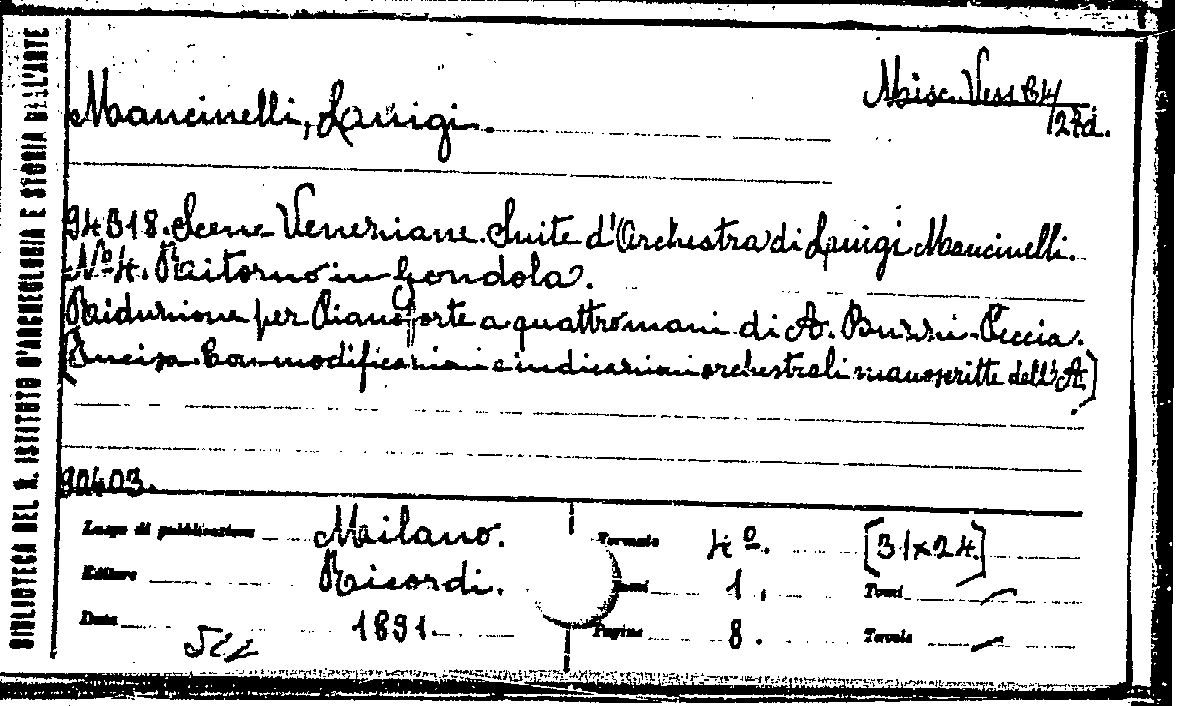 BIBLIOTECA DEL R. ISTITUTO D'ARCHEOLOGIA E STORIA DELL'ARTE
Mancinelli, Luigi.
Misc. Vess. B4/27d.
94318. Scene Veneziane. Suite d'Orchestra di Luigi Mancinelli.
Nº 4. Ritorno in Gondola.
Riduzione per Pianoforte a quattro mani di A. Buzzi-Peccia.
[Incisa. Con modificazioni e indicazioni orchestrali manoscritte dell'A.]
90403.
Luogo di pubblicazione Milano. Formato 4º. [31x24.]
Editore Ricordi. 1. Tomi —
Data 1891. Pagine 8. Tavole —